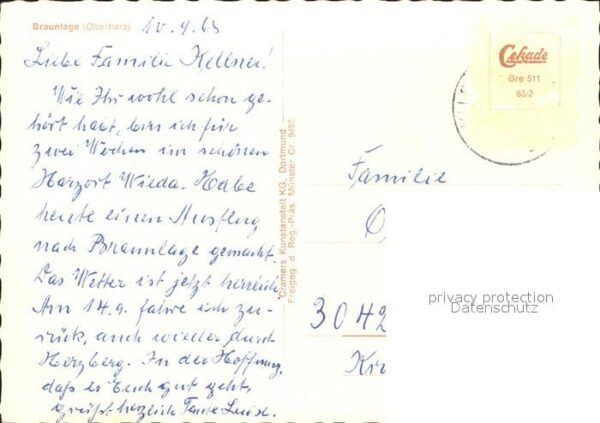 Braunlage (Oberharz)
10.9.65
Liebe Familie Kellner!
Wie Ihr wohl schon ge-
hört habt, bin ich für
zwei Wochen im schönen
Harzort Wieda. Habe
heute einen Ausflug
nach Braunlage gemacht.
Das Wetter ist jetzt herrlich.
Am 14.9. fahre ich zu-
rück, auch wieder durch
Herzberg. In der Hoffnung,
daß es Euch gut geht,
grüßt herzlich Tante Luise.
Cramers Kunstanstalt KG, Dortmund
Freigeg. d. Reg.-Präs. Münster Cr. 9462
Cekade
Bre 511
66/2
Familie
3042
privacy protection
Datenschutz